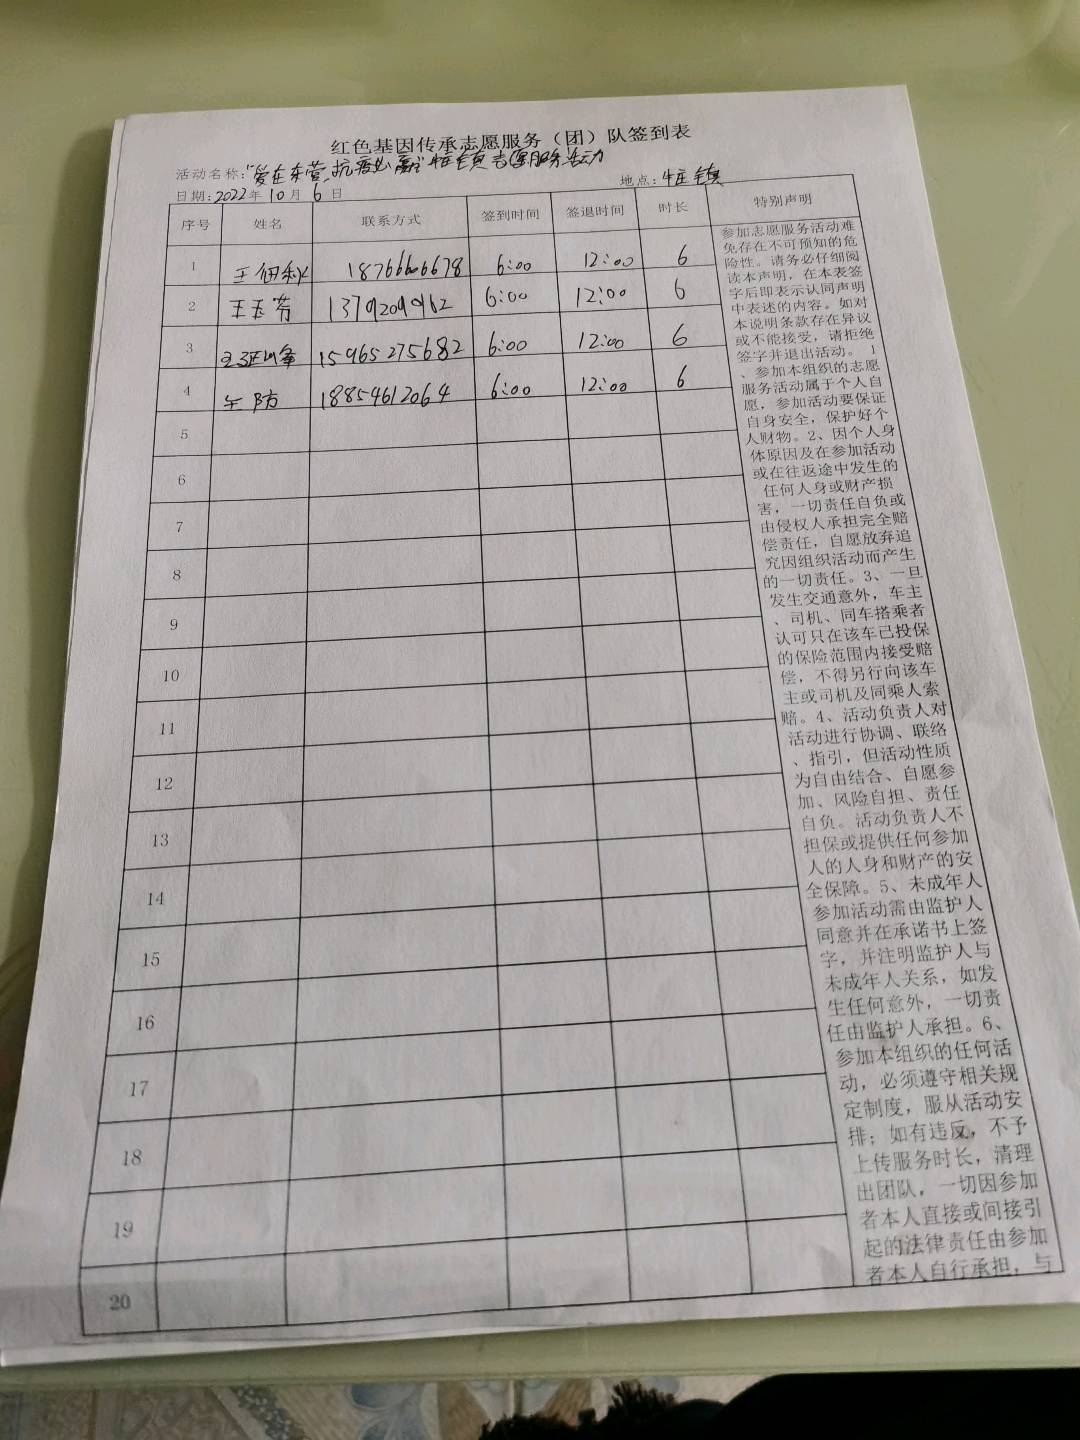 红色基因传承志愿服务（团）队签到表
活动名称："爱在东营 抗疫必赢"牛庄镇志愿服务活动
日期：2022年10月6日 地点：牛庄镇
序号 姓名 联系方式 签到时间 签退时间 时长 特别声明
1 王佃秋 18766606678 6:00 12:00 6
2 王玉芳 13792099962 6:00 12:00 6
3 15965275682 6:00 12:00 6
4 防 18854612064 6:00 12:00 6
5
6
7
8
9
10
11
12
13
14
15
16
17
18
19
20
参加志愿服务活动难
免存在不可预知的危
险性。请务必仔细阅
读本声明，在本表签
字后即表示认同声明
中表述的内容。如对
本说明条款存在异议
或不能接受，请拒绝
签字并退出活动。1
、参加本组织的志愿
服务活动属于个人自
愿，参加活动要保证
自身安全，保护好个
人财物。2、因个人身
体原因及在参加活动
或在往返途中发生的
任何人身或财产损
害，一切责任自负或
由侵权人承担完全赔
偿责任，自愿放弃追
究因组织活动而产生
的一切责任。3、一旦
发生交通意外，车主
、司机、同车搭乘者
认可只在该车已投保
的保险范围内接受赔
偿，不得另行向该车
主或司机及同乘人索
赔。4、活动负责人对
活动进行协调、联络
、指引，但活动性质
为自由结合、自愿参
加、风险自担、责任
自负。活动负责人不
担保或提供任何参加
人的人身和财产的安
全保障。5、未成年人
参加活动需由监护人
同意并在承诺书上签
字，并注明监护人与
未成年人关系，如发
生任何意外，一切责
任由监护人承担。6、
参加本组织的任何活
动，必须遵守相关规
定制度，服从活动安
排；如有违反，不予
上传服务时长，清理
出团队，一切因参加
者本人直接或间接引
起的法律责任由参加
者本人自行承担，与